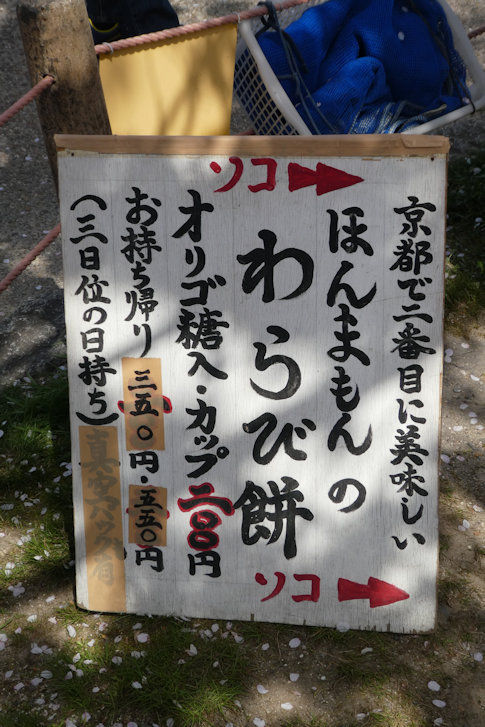 ソコ
京都で二番目に美味しい
ほんまもんの
わらび餅
オリゴ糖入・カップ二〇〇円
お持ち帰り三五〇円・五五〇円
(三日位の日持ち)
真空パック有
ソコ